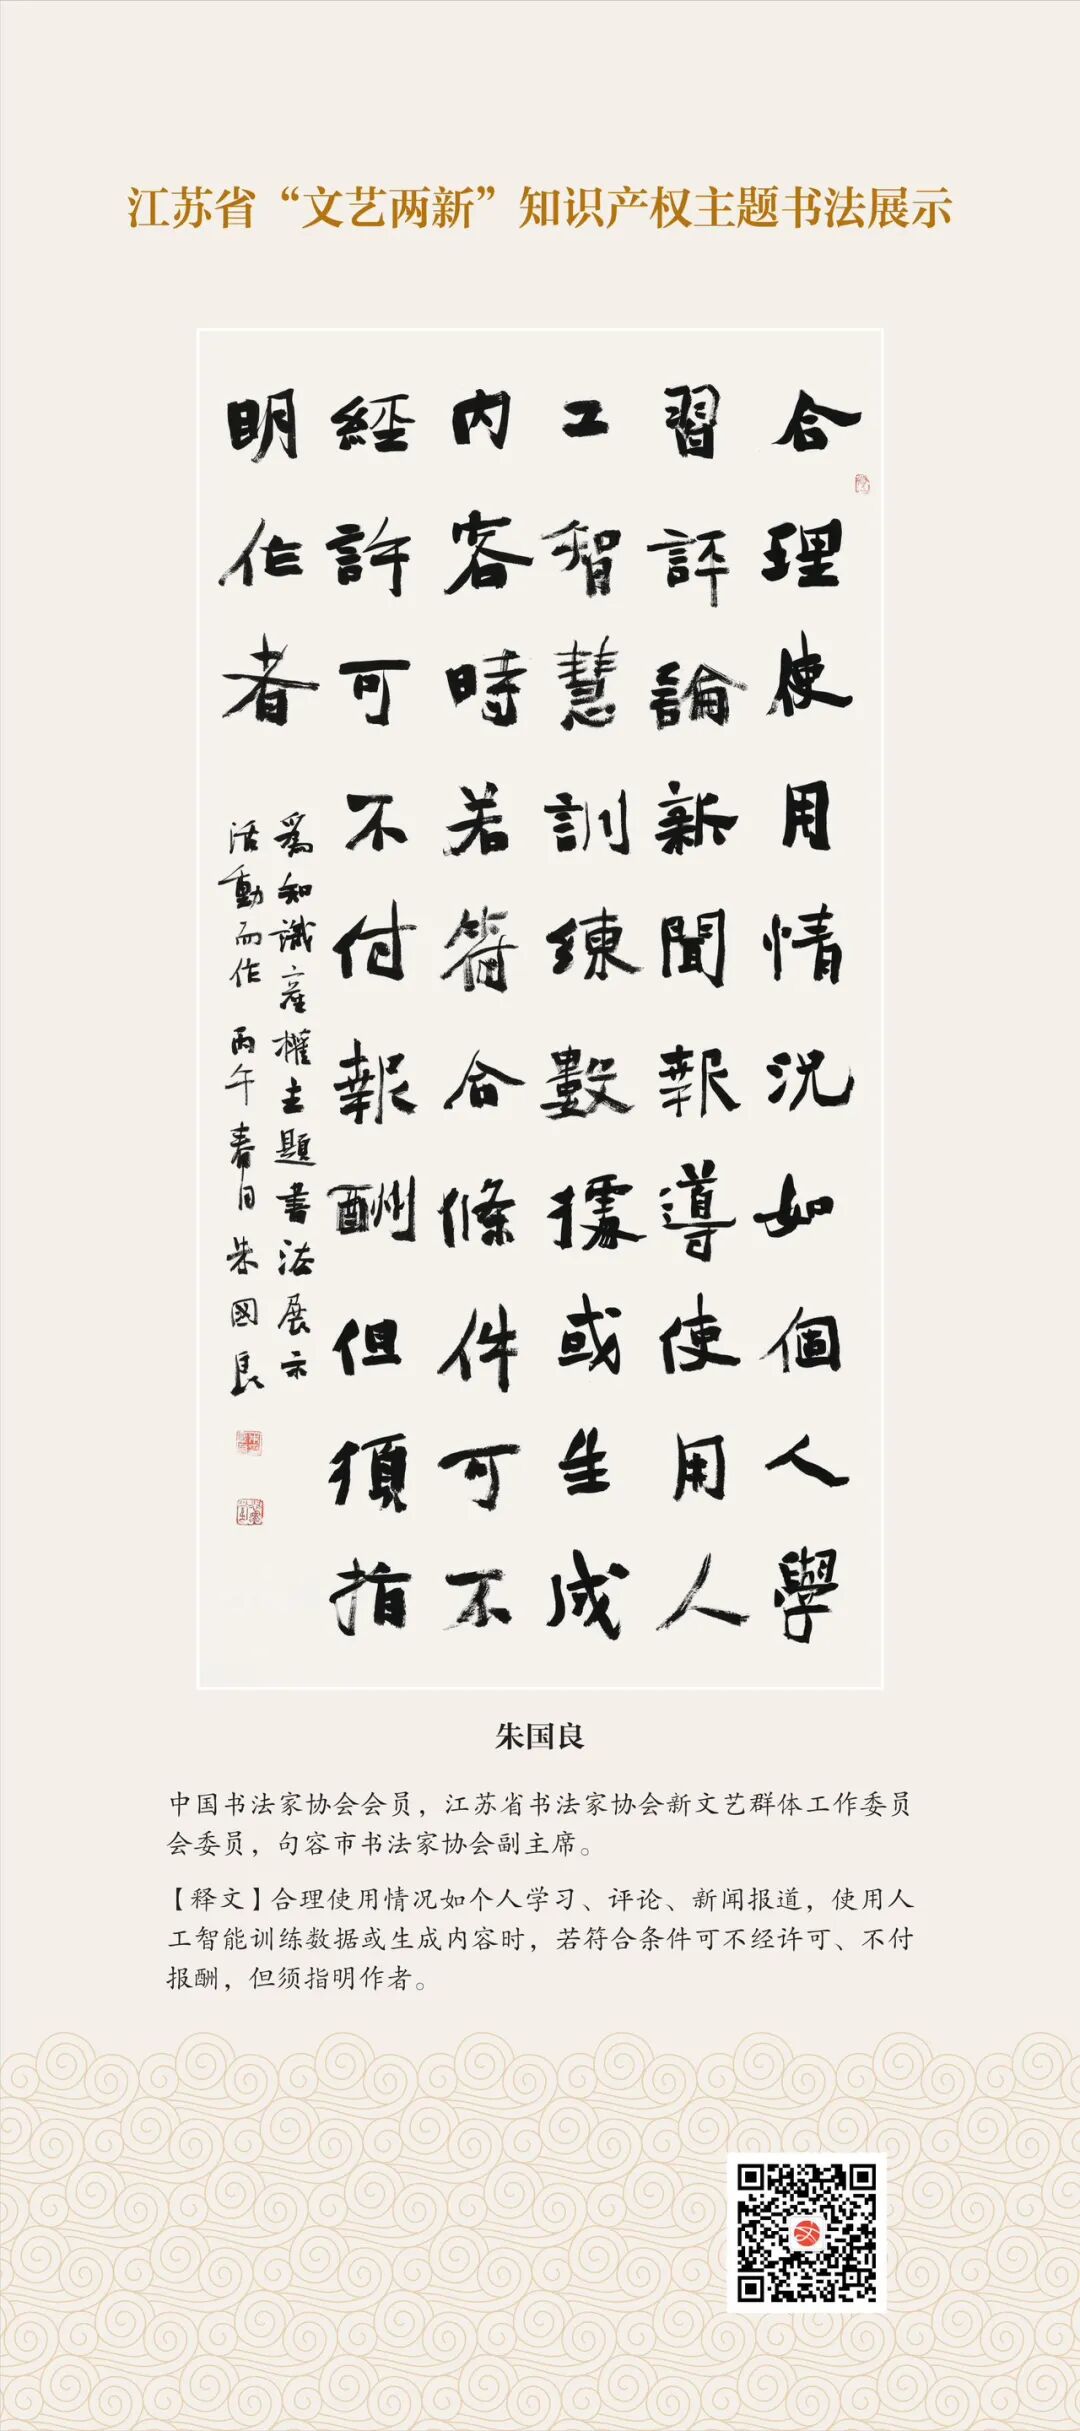 江苏省“文艺两新”知识产权主题书法展示
合理使用情況如個人學
習評論新聞報導使用人
工智慧訓練數據或生成
内容時若符合條件可不
經許可不付報酬但須指
明作者
為知識產權主題書法展示
活動而作 丙午春日 朱國良
朱国良
中国书法家协会会员，江苏省书法家协会新文艺群体工作委员
会委员，句容市书法家协会副主席。
【释文】合理使用情况如个人学习、评论、新闻报道，使用人
工智能训练数据或生成内容时，若符合条件可不经许可、不付
报酬，但须指明作者。